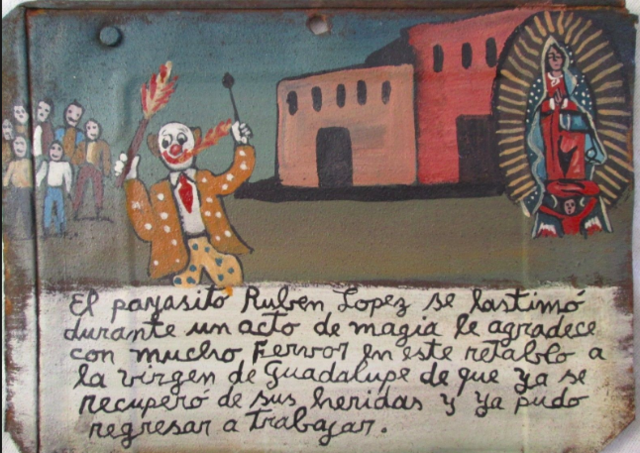 El payasito Ruben Lopez se lastimó
durante un acto de magia le agradece
con mucho Fervor en este retablo a
la virgen de Guadalupe de que ya se
recuperó de sus heridas y ya pudo
regresar a trabajar.